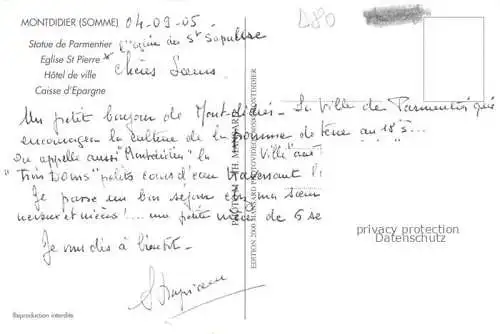 MONTDIDIER (SOMME) 04-09-05- D80
Statue de Parmentier l'église du St Sépulcre
Eglise St Pierre
Hôtel de ville Chères Soeurs
Caisse d'Epargne
Un petit bonjour de Montdidier - La Ville de Parmentier qui
encouragea la culture de la pomme de terre au 18e s...
On appelle aussi "Montdidier" la Ville "aux
"Trois Doms" petits cours d'eau traversant
Je passe un bon séjour chez ma soeur
neveux et nièces! ... une petite nièce de 6
Je vous dis à bientôt -
PHOTOS PH. MANSARD
EDITION 2000 MANSARD PHOTO VIDEO MONTDIDIER
privacy protection
Datenschutz
Reproduction interdite